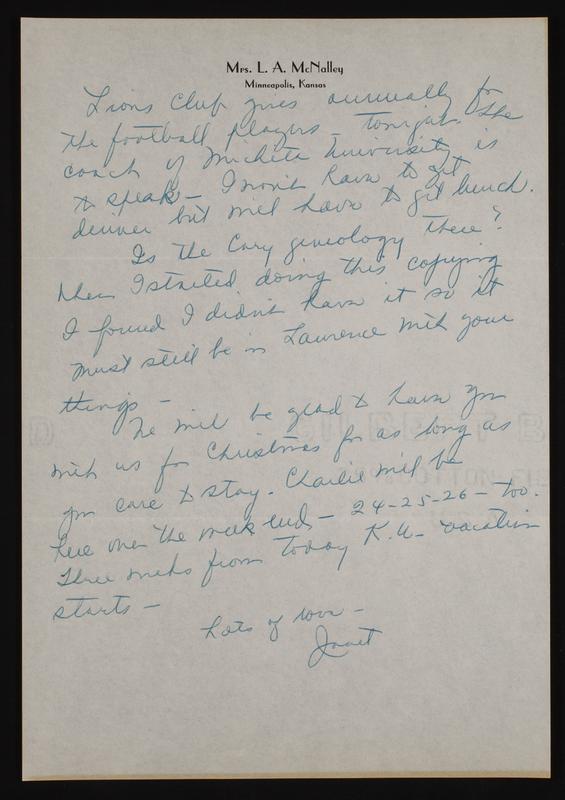 Mrs. L. A. McNalley
Minneapolis, Kansas
Lions Club gives annually for
the football players tonight. The
coach of Wichita University is
to speak — I won't have to get
dinner but will have to get lunch.
Is the Cary geneology there?
When I started doing this copying
I found I didn't have it so it
must still be in Lawrence with your
things —
We will be glad to have you
with us for Christmas for as long as
you care to stay. Charlie will be
here over the week end — 24-25-26 — too.
Three weeks from today K.U. vacation
starts —
Lots of love —
Janet